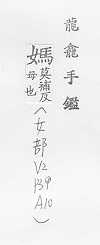 龍龕手鑑
媽莫補反母也(女部V2P39A10)